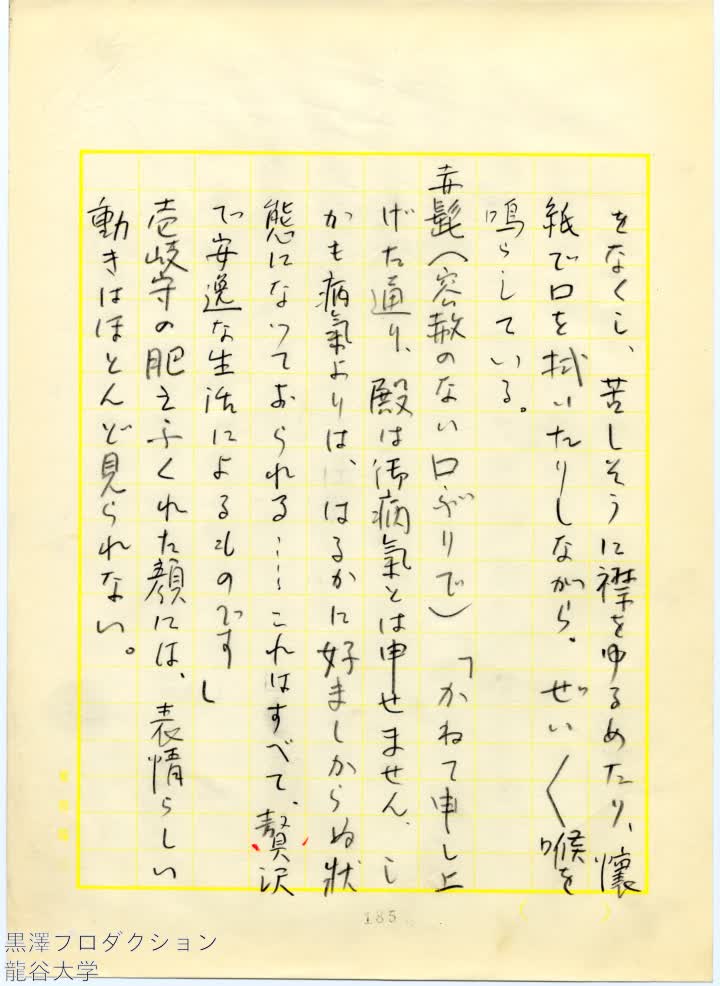 をなくし、苦しそうに襟をゆるめたり、懐
紙で口を拭いたりしながら。ぜい〱喉を
鳴らしている。
赤髭（容赦のない口ぶりで）「かねて申し上
げた通り、殿は御病氣とは申せません、し
かも病氣よりは、はるかに好ましからぬ状
態になっておられる……これはすべて、贅沢
で安逸な生活によるものです」
壱岐守の肥えふくれた顔には、表情らしい
動きはほとんど見られない。
185
黒澤プロダクション
龍谷大学